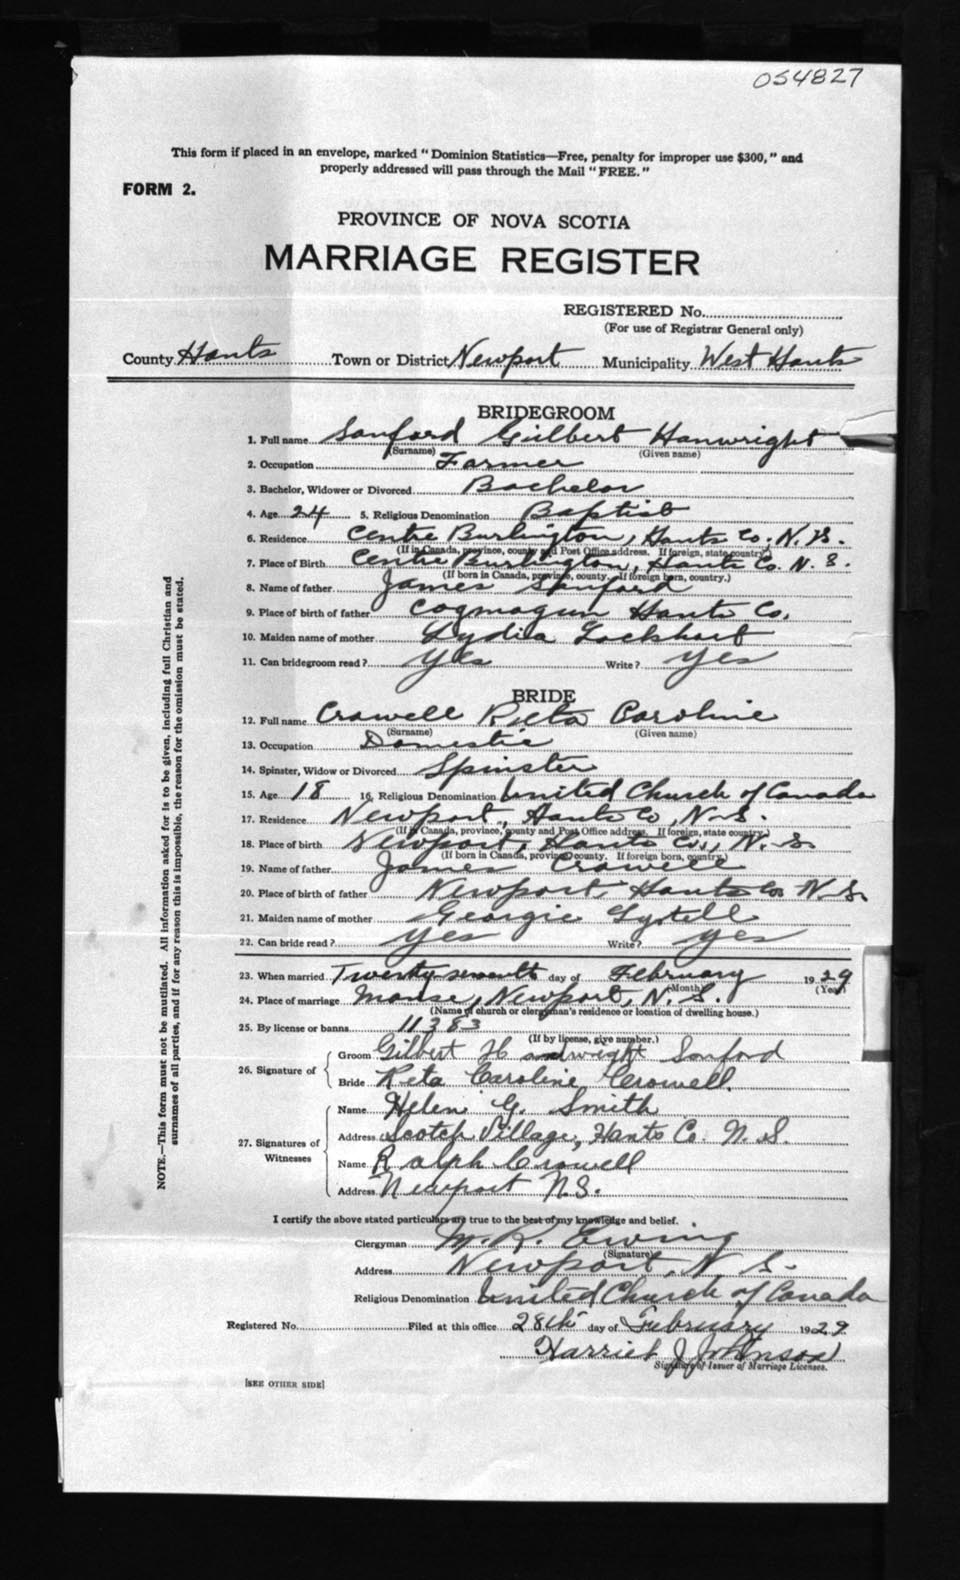 054827
This form if placed in an envelope, marked "Dominion Statistics—Free, penalty for improper use $300," and
properly addressed will pass through the Mail "FREE."
FORM 2.
PROVINCE OF NOVA SCOTIA
MARRIAGE REGISTER
REGISTERED No.
(For use of Registrar General only)
County Hants Town or District Newport Municipality West Hants
BRIDEGROOM
1. Full name Sanford Gilbert Hanwright
(Surname) (Given name)
2. Occupation Farmer
3. Bachelor, Widower or Divorced Bachelor
4. Age 24 5. Religious Denomination Baptist
6. Residence Centre Burlington, Hants Co; N.S.
(If in Canada, province, county and Post Office address. If foreign, state country.)
7. Place of Birth Centre Burlington, Hants Co. N.S.
(If born in Canada, province, county. If foreign born, country.)
8. Name of father James Sanford
9. Place of birth of father Cogmagun Hants Co.
10. Maiden name of mother Lydia Lockhart
11. Can bridegroom read? Yes Write? Yes
BRIDE
12. Full name Crowell Rieta Caroline
(Surname) (Given name)
13. Occupation Domestic
14. Spinster, Widow or Divorced Spinster
15. Age 18 16. Religious Denomination United Church of Canada
17. Residence Newport, Hants Co, N.S.
(If in Canada, province, county and Post Office address. If foreign, state country.)
18. Place of birth Newport, Hants Co., N.S.
(If born in Canada, province, county. If foreign born, country.)
19. Name of father James Crowell
20. Place of birth of father Newport, Hants Co N.S.
21. Maiden name of mother Georgie
22. Can bride read? Yes Write? Yes
23. When married Twenty-seventh day of February 1929
(Month) (Year)
24. Place of marriage Manse, Newport, N.S.
(Name of church or clergyman's residence or location of dwelling house.)
25. By license or banns 11383
(If by license, give number.)
26. Signature of Groom Gilbert H andwright Sanford
Bride Reta Caroline Crowell.
27. Signatures of Witnesses Name Helen G. Smith
Address Scotch Village, Hants Co. N.S.
Name Ralph Crowell
Address Newport N.S.
I certify the above stated particulars are true to the best of my knowledge and belief.
Clergyman M. R. Ewing
(Signature)
Address Newport, N.S.
Religious Denomination United Church of Canada
Registered No. Filed at this office 28th day of February 1929
Harriet J Johnson
Signature of Issuer of Marriage Licenses.
[SEE OTHER SIDE]
NOTE.—This form must not be mutilated. All information asked for is to be given, including full Christian and
surnames of all parties, and if for any reason this is impossible, the reason for the omission must be stated.